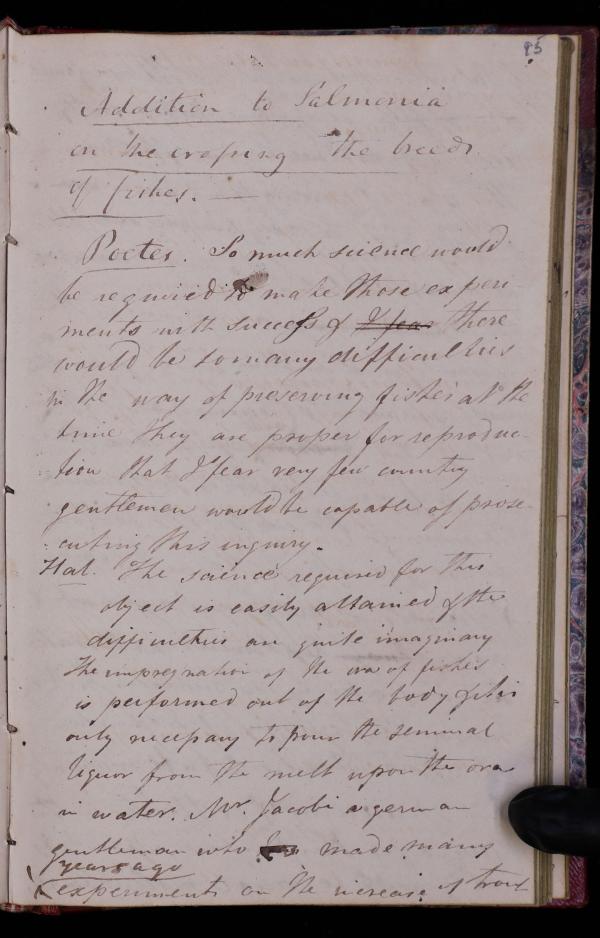 95
Addition to Salmonia
on the crossing the breeds
of fishes. —
Poetes. So much science would
be required to make those experi-
ments with success & I fear there
would be so many difficulties
in the way of preserving fishes at the
time they are proper for reproduc-
tion that I fear very few country
gentlemen would be capable of prose-
cuting this inquiry.
Hal. The science required for this
object is easily attained & the
difficulties are quite imaginary
The impregnation of the ova of fishes
is performed out of the body & it is
only necessary to pour the seminal
liquor from the melt upon the ova
in water. Mr. Jacobi a german
gentleman who made many
years ago
experiments on the increase of trout